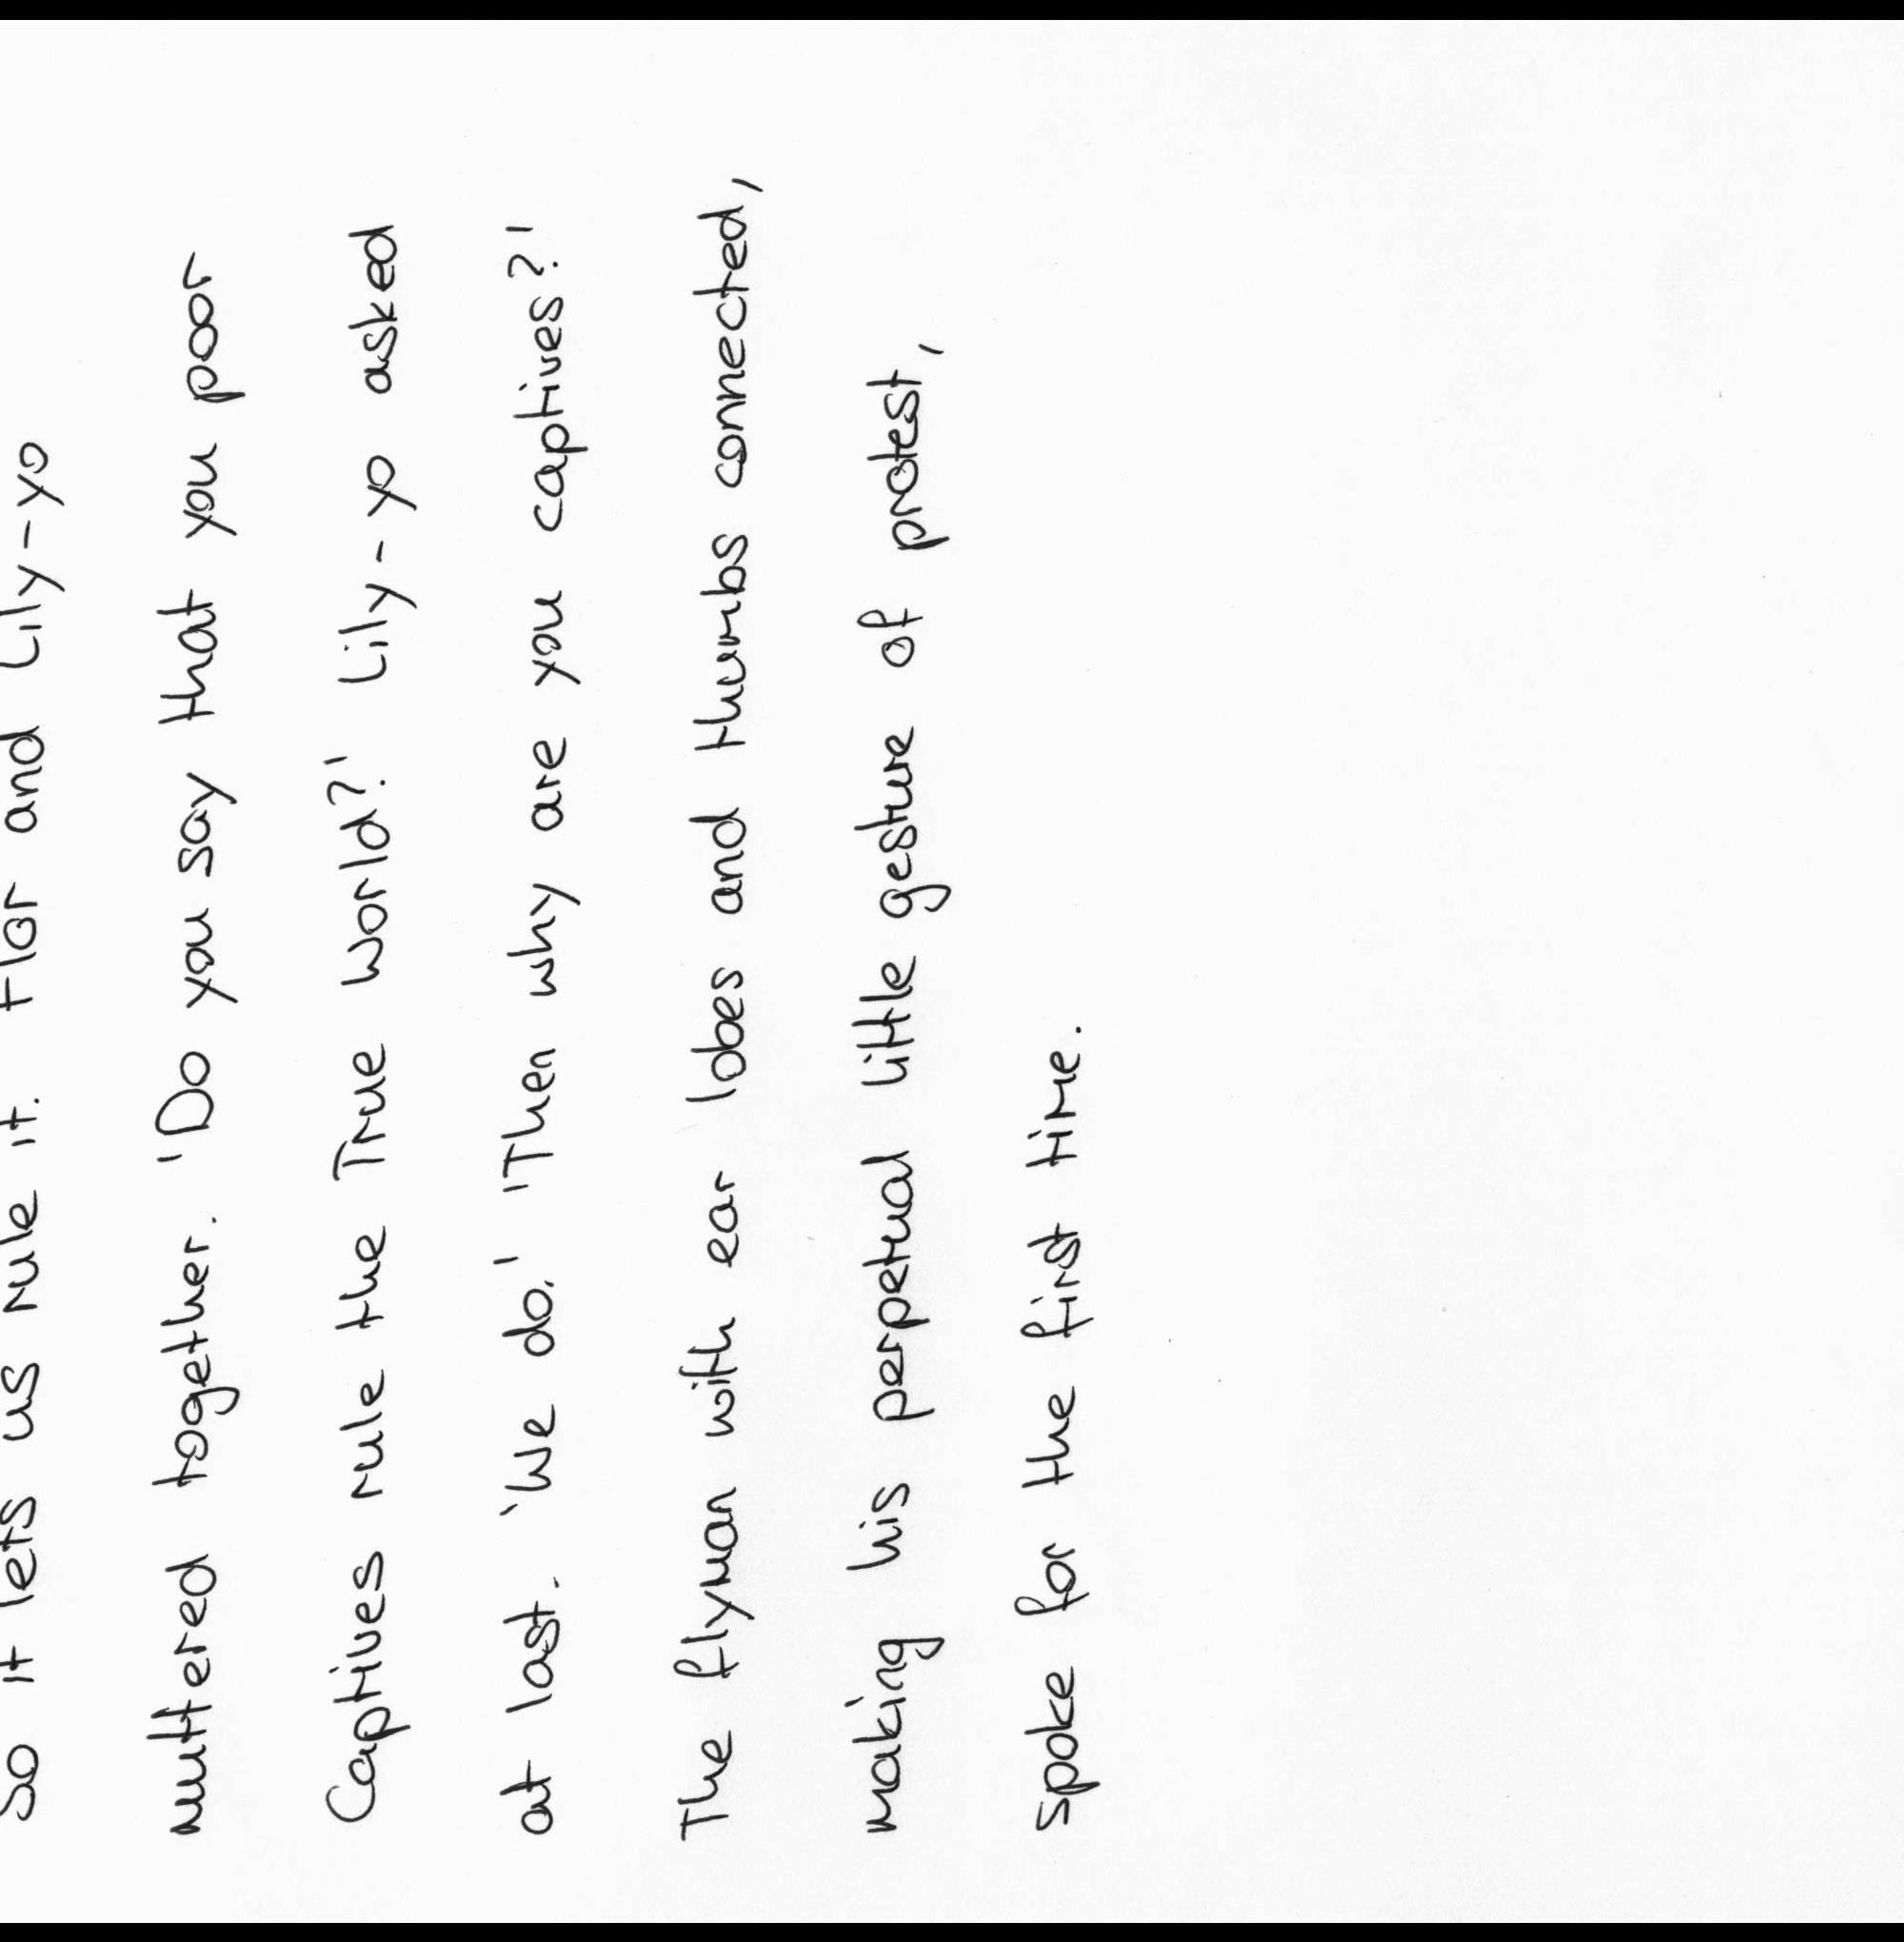 So it lets us rule it. Flor and Lily-yo
muttered together. 'Do you say that you poor
Captives rule the True World?' Lily-yo asked
at last. 'We do.' 'Then why are you captives?'
The flyman with ear lobes and thumbs connected,
making his perpetual little gesture of protest,
spoke for the first time.